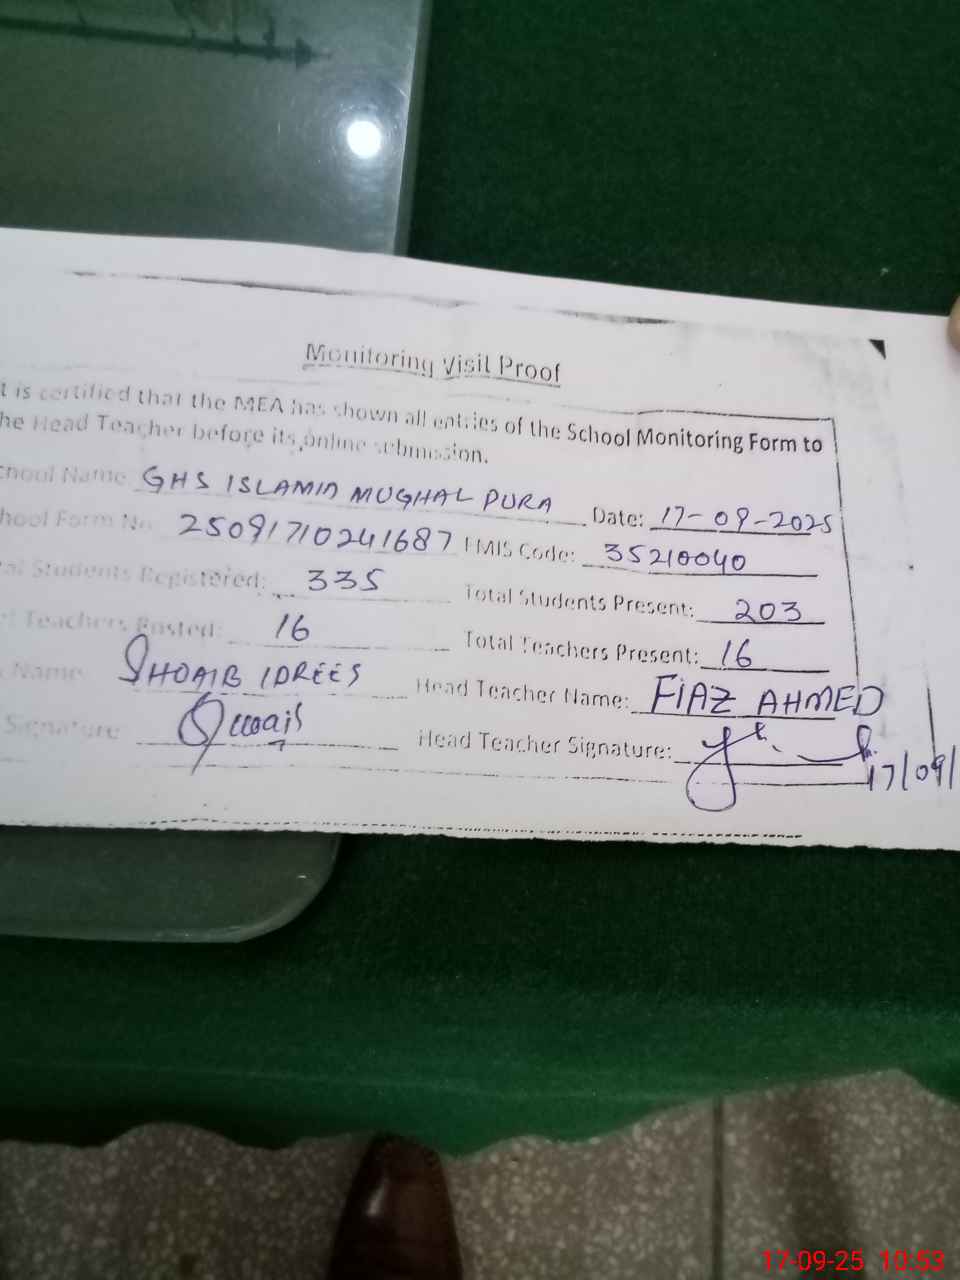 Monitoring Visit Proof
t is certified that the MEA has shown all entries of the School Monitoring Form to
he Head Teacher before its online submission.
chool Name GHS ISLAMIA MUGHAL PURA Date: 17-09-2025
hool Form No 25091710241687 EMIS Code: 35210040
tal Students Registered: 335 Total Students Present: 203
Teachers Posted: 16 Total Teachers Present: 16
Name SHOAIB IDREES Head Teacher Name: FIAZ AHMED
Signature Head Teacher Signature:
17/09/
17-09-25 10:53